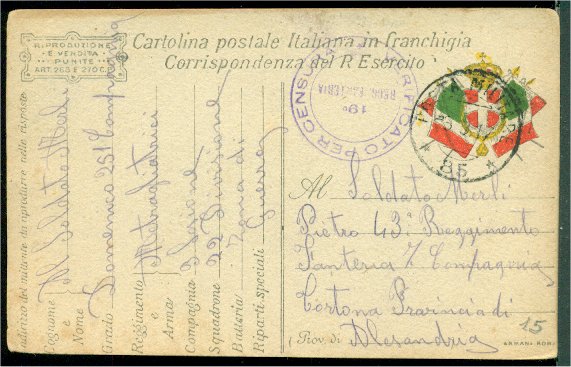 RIPRODUZIONE
E VENDITA
PUNITE
ART. 265 E 210 C.P.
Cartolina postale Italiana in franchigia
Corrispondenza del R. Esercito
VERIFICATO PER CENSURA
19°
REGG. FANTERIA
POSTA MILITARE
85
Al Soldato Merli
Pietro 43° Reggimento
Fanteria 7 Compagnia
Cortona Provincia di
(Prov. di Alesandria
15
indirizzo del mittente da riprodurre nelle risposte
Cognome Al Soldato Merli
e
Nome
Grado Domenico 251 Compagnia
Reggimento Mitragliatrici
e
Arma
Compagnia
Squadrone 22 Divisione
Batteria Zona di
Riparti speciali Guerra